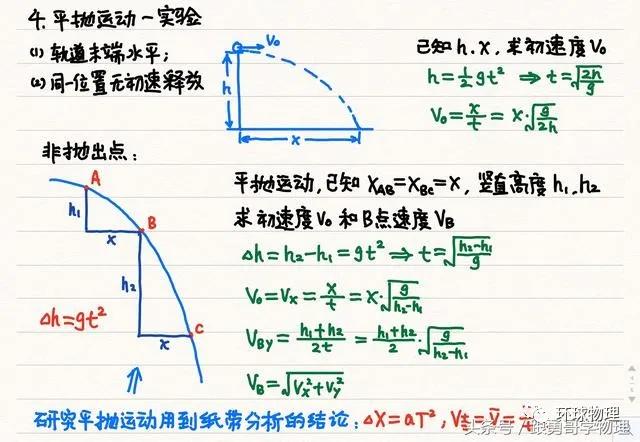 4. 平抛运动—实验
(1) 轨道末端水平;
(2) 同一位置无初速释放
V₀
h
x
已知h.x,求初速度V₀
h=½gt² ⇒ t=√(2h/g)
V₀=x/t=x·√(g/2h)
非抛出点:
A
h₁
x
B
h₂
x
C
Δh=gt²
平抛运动,已知 X_AB=X_BC=X,竖直高度h₁,h₂
求初速度V₀和B点速度V_B
Δh=h₂-h₁=gt² ⇒ t=√((h₂-h₁)/g)
V₀=Vx=x/t=x·√(g/(h₂-h₁))
V_By=(h₁+h₂)/2t=(h₁+h₂)/2·√(g/(h₂-h₁))
V_B=√(Vx²+Vy²)
研究平抛运动用到纸带分析的结论:ΔX=aT²,V_(t/2)=V̄=
环球物理
头条号
哥学物理